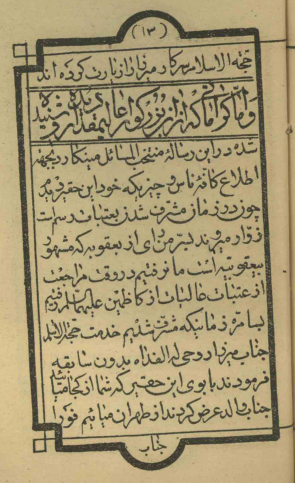 (١٣)
حجة الاسلام سرکار میرزا از زیارت کرده اند
و اما کراماتیکه از این بزرگوار عالیمقدار دیده و شنیده
شده در این رساله منتخب المسائل مینگارد بجهة
اطلاع کافهٔ ناس و چیزیکه خود این حقیر دیدم
چون در زمان مشرف شدن بعتبات رسم است
زوار میروند بسر من رای از یعقوبه که مشهور
بیعقوبیه است ما نرفتیم در وقت مراجعت
از عتبات عالیات از کاظمین علیهما السلام رفتیم
بسامره زمانیکه مشرف شدیم خدمت حجة الاسلام
جناب میرزا روحی له الفداه بدون سابقه
فرمودند بابوی این حقیر که شما از کجا میائید
جناب والد عرض کردند از طهران میائیم فوراً
جناب